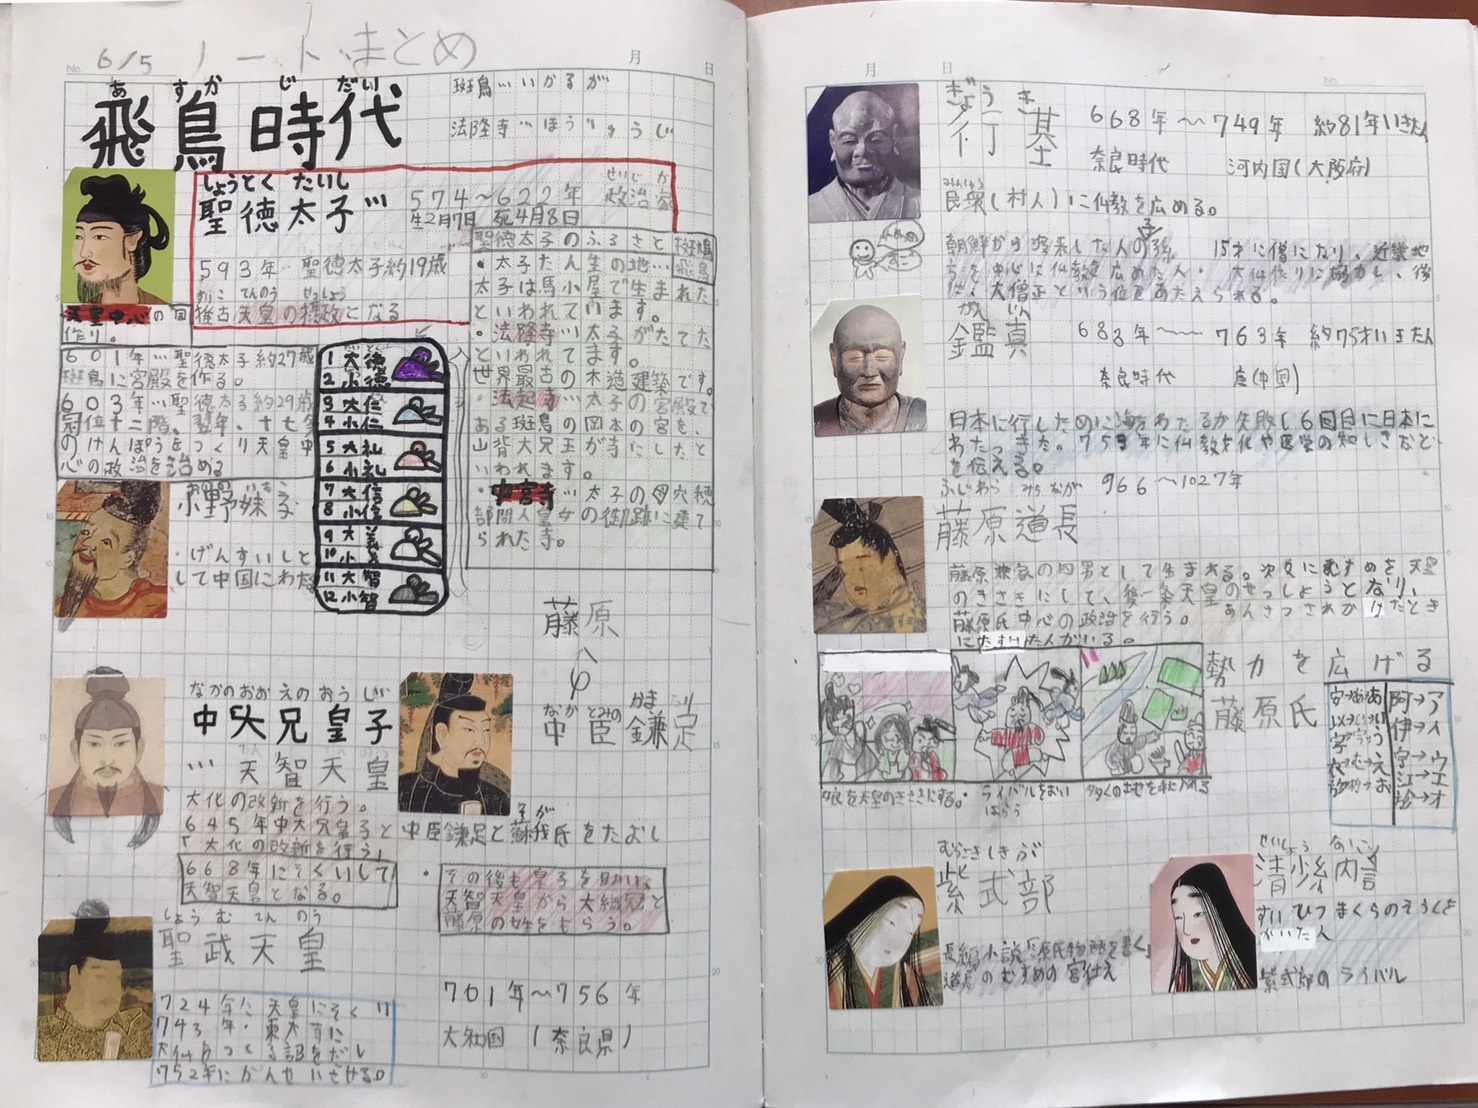 No. 6/5 ノートまとめ 月 日
あすか じだい
飛鳥時代
斑鳩…いかるが
法隆寺…ほうりゅうじ
しょうとく たいし
聖徳太子…
574～622年
生2月7日 死4月8日
せいじか
政治家
593年 聖徳太子約19歳
すいこ てんのう せっしょう
推古天皇の摂政になる
天皇中心の国
作り。
601年…聖徳太子約27歳
斑鳩に宮殿を作る。
603年…聖徳太子約29歳
冠位十二階。翌年・十七条
のけんぽうをつくり天皇中
心の政治を始める
1 大徳
2 小徳
3 大仁
4 小仁
5 大礼
6 小礼
7 大信
8 小信
9 大義
10 小義
11 大智
12 小智
聖徳太子のふるさと 斑鳩
飛鳥
・太子たん生の地…
太子は馬小屋で生まれた
といわれています。
・法隆寺…太子がたてた
といわれてます。
世界最古の木造建築です。
・法起寺…太子の宮殿で
ある斑鳩の岡本の宮を、
山背大兄王が寺にしたと
いわれます。
・中宮寺…太子の母穴穂
部間人皇女の御所跡に建て
られた寺。
おののいもこ
小野妹子
・げんすいしと
して中国にわた
なかのおおえのおうじ
中大兄皇子
…天智天皇
大化の改新を行う。
645年中大兄皇子と中臣鎌足と蘇我氏をたおし
そが
「大化の改新を行う」
668年にそくいして
天智天皇となる。
藤原
なかとみの かまたり
中臣鎌足
・その後も皇子を助い、
天智天皇から大織冠と
藤原の姓をもらう。
しょうむ てんのう
聖武天皇
701年～756年
大和国(奈良県)
724年に天皇にそく
743年・東大寺に
大仏をつくる詔をだし
752年にかんせいさせる。
月 日 No.
ぎょうき
行基
668年～749年 約81年いきた
奈良時代 河内国(大阪府)
みんしゅう
民衆(村人)に仏教を広める。
朝鮮から渡来した人の孫 15才に僧になり、近畿地
方を中心に仏教を広めた人・大仏作りに協力し、後
に、大僧正という位をあたえられる。
がんじん
鑑真
688年～763年 約75才いきた
奈良時代 唐(中国)
日本に行したのに海をわたるが失敗し6回目に日本に
わたってきた。759年に仏教文化や医学の知しきなど
を伝える。
ふじわら みちなが
藤原道長
966～1027年
藤原兼家の四男として生まれる。次女にむすめを天皇
のきさきにして、後一条天皇のせっしょうとなり、
藤原氏中心の政治を行う。 あんさつされかけたとき
にたすけた人がいる。
勢力を広げる
藤原氏
娘を天皇のきさきにする。
ライバルをおい
はらう
多くの土地を手に入れる
安→あ
以→い
宇→う
衣→え
於→お
阿→ア
伊→イ
宇→ウ
江→エ
於→オ
むらさきしきぶ
紫式部
長編小説「源氏物語を書く」
道長のむすめの宮仕え
せいしょうなごん
清少納言
ずいひつまくらのそうしを
かいた人
紫式部のライバル